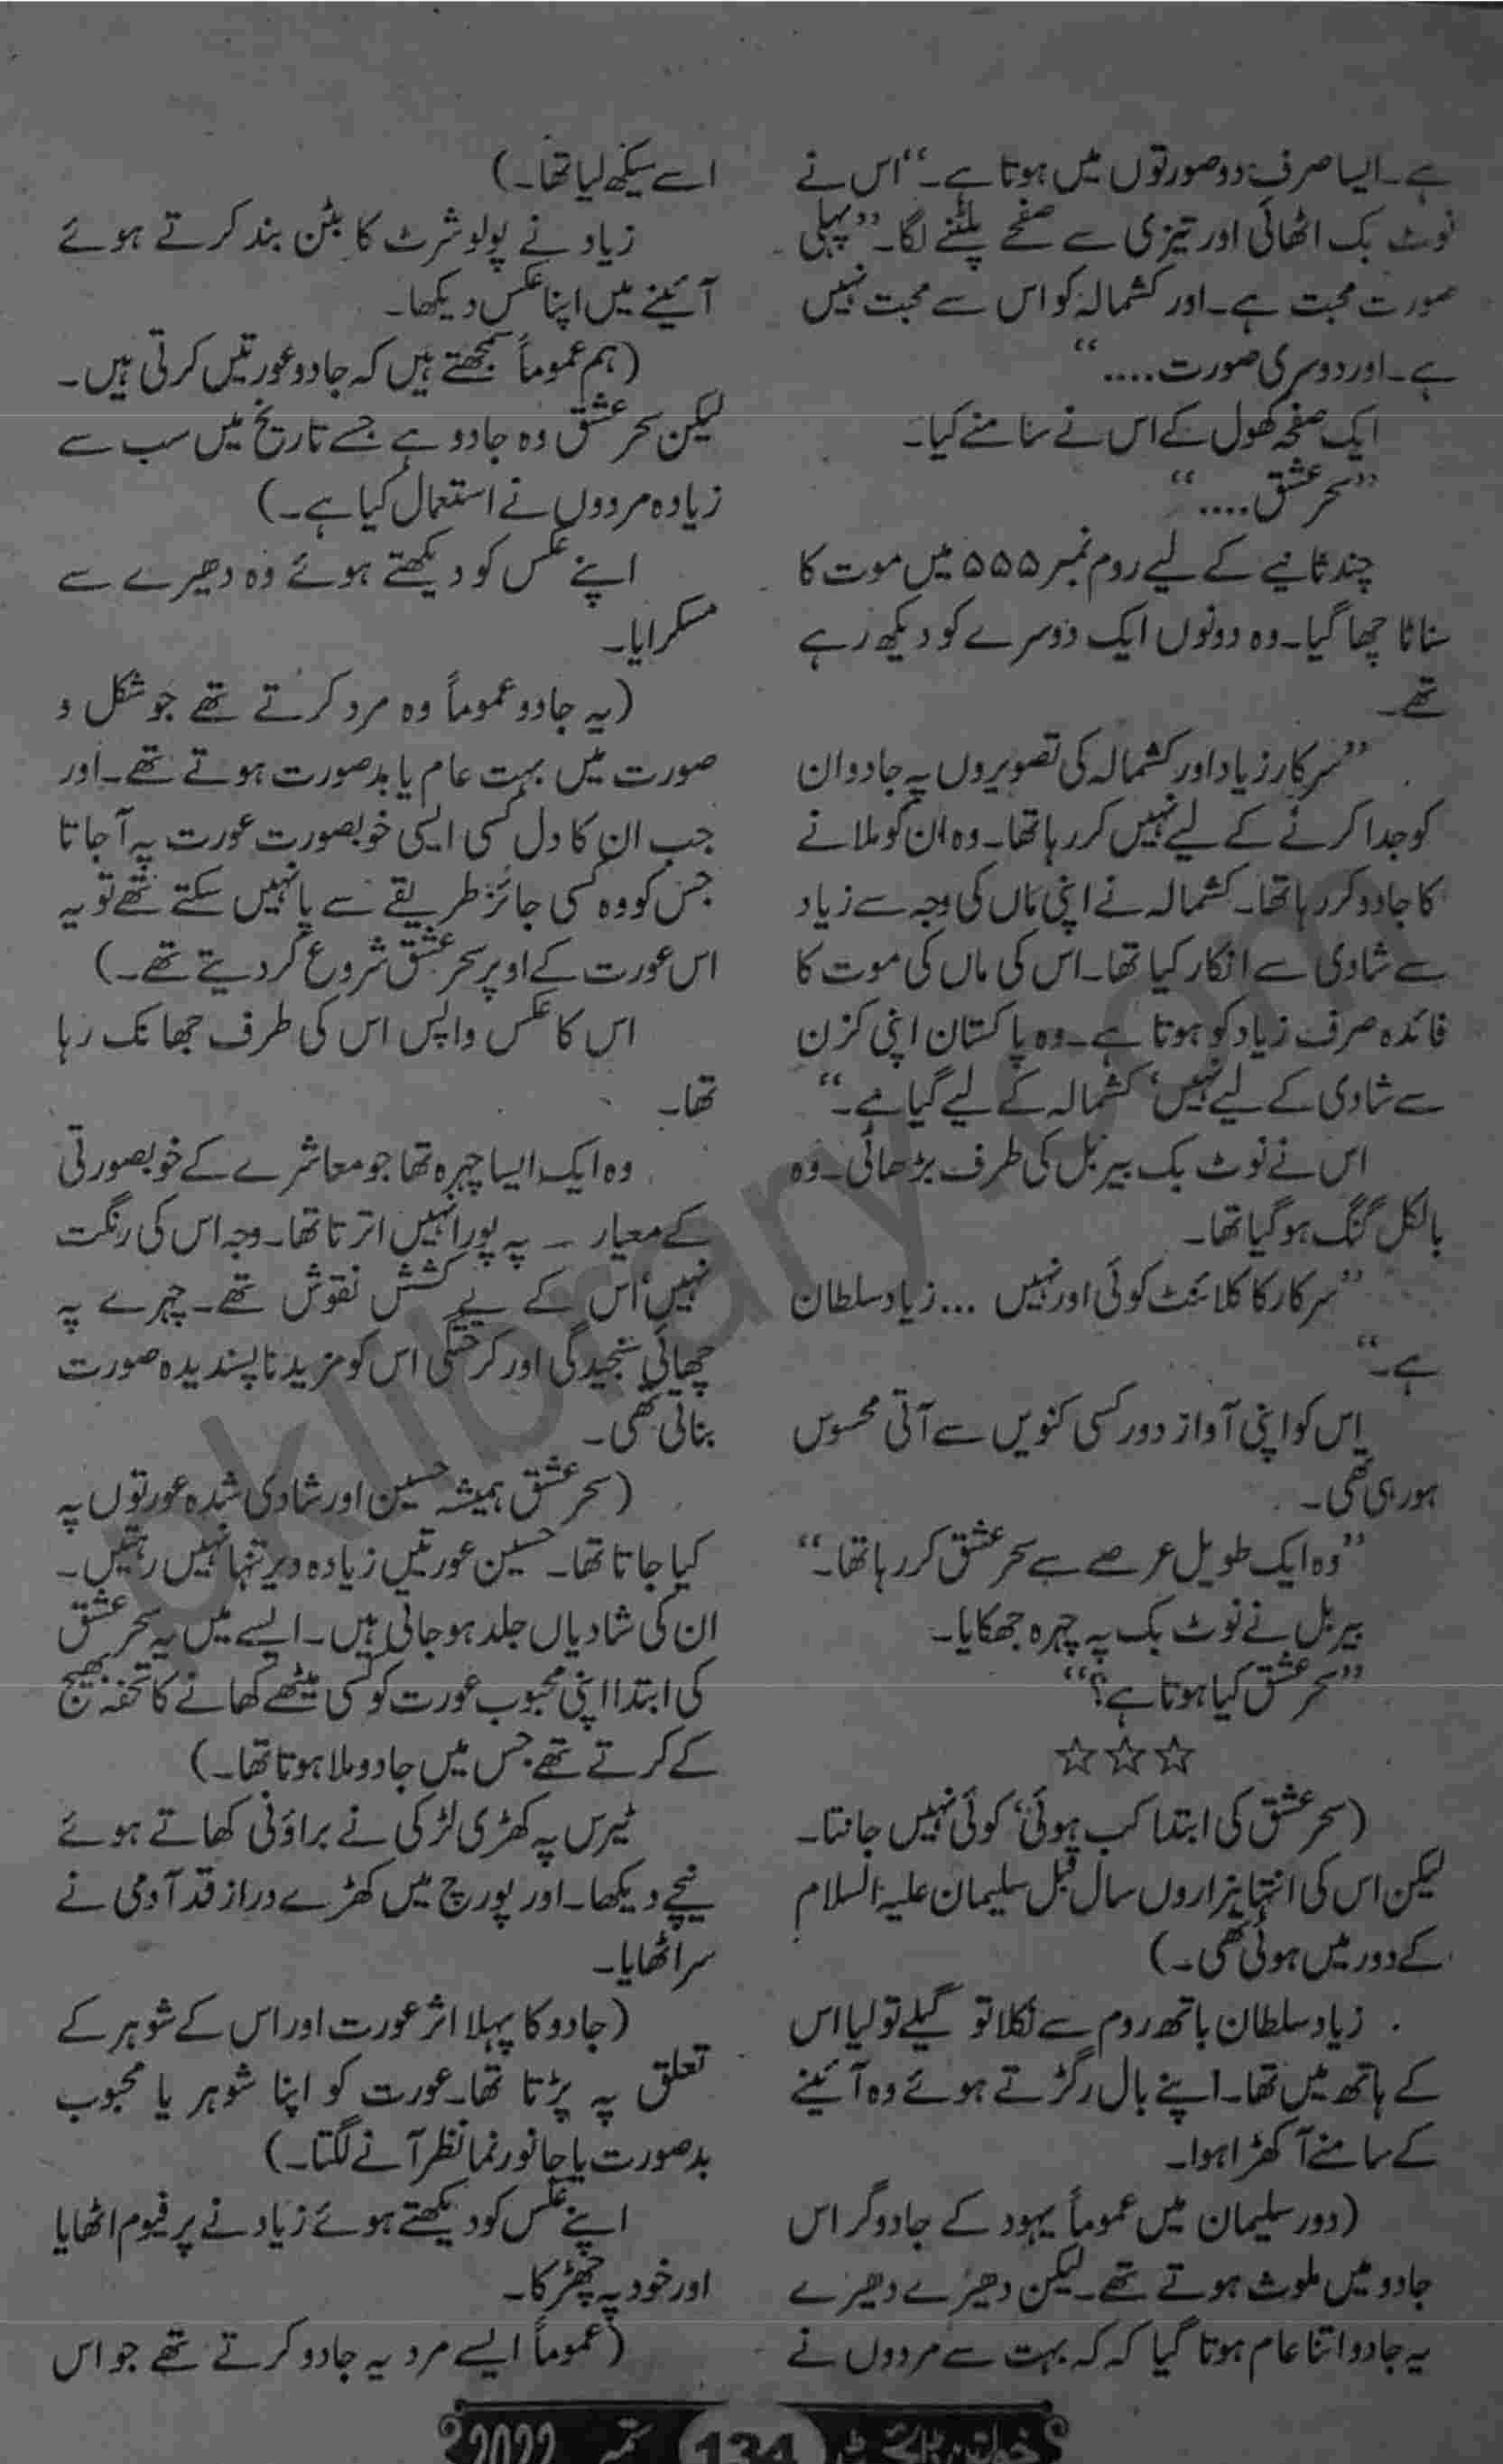 ہے۔ ایسا صرف دو صورتوں میں ہوتا ہے۔‘‘ اس نے
نوٹ بک اٹھائی اور تیزی سے صفحے پلٹنے لگا۔ ’’پہلی
صورت محبت ہے۔ اور کشمالہ کو اس سے محبت نہیں
ہے۔ اور دوسری صورت....‘‘
ایک صفحہ کھول کے اس نے سامنے کیا۔
’’سحر عشق....‘‘
چند ثانیے کے لیے روم نمبر ۵۵۵ میں موت کا
سناٹا چھا گیا۔ وہ دونوں ایک دوسرے کو دیکھ رہے
تھے۔
’’سرکار زیاد اور کشمالہ کی تصویروں پہ جادو ان
کو جدا کرنے کے لیے نہیں کر رہا تھا۔ وہ ان کو ملانے
کا جادو کر رہا تھا۔ کشمالہ نے اپنی ماں کی وجہ سے زیاد
سے شادی سے انکار کیا تھا۔ اس کی ماں کی موت کا
فائدہ صرف زیاد کو ہوتا ہے۔ وہ پاکستان اپنی کزن
سے شادی کے لیے نہیں، کشمالہ کے لیے گیا ہے۔‘‘
اس نے نوٹ بک بیربل کی طرف بڑھائی۔ وہ
بالکل گنگ ہو گیا تھا۔
’’سرکار کا کلائنٹ کوئی اور نہیں ... زیاد سلطان
ہے۔‘‘
اس کو اپنی آواز دور کسی کنویں سے آتی محسوس
ہو رہی تھی۔
’’وہ ایک طویل عرصے سے سحر عشق کر رہا تھا۔‘‘
بیربل نے نوٹ بک پہ چہرہ جھکایا۔
’’سحر عشق کیا ہوتا ہے؟‘‘
☆☆☆
(سحر عشق کی ابتدا کب ہوئی، کوئی نہیں جانتا۔
لیکن اس کی انتہا ہزاروں سال قبل سلیمان علیہ السلام
کے دور میں ہوئی تھی۔)
زیاد سلطان باتھ روم سے نکلا تو گیلے تولیا اس
کے ہاتھ میں تھا۔ اپنے بال رگڑتے ہوئے وہ آئینے
کے سامنے آ کھڑا ہوا۔
(دور سلیمان میں عموماً یہود کے جادوگر اس
جادو میں ملوث ہوتے تھے۔ لیکن دھیرے دھیرے
یہ جادو اتنا عام ہوتا گیا کہ کہ بہت سے مردوں نے
اسے سیکھ لیا تھا۔)
زیاد نے پولو شرٹ کا بٹن بند کرتے ہوئے
آئینے میں اپنا عکس دیکھا۔
(ہم عموماً سمجھتے ہیں کہ جادو عورتیں کرتی ہیں۔
لیکن سحر عشق وہ جادو ہے جسے تاریخ میں سب سے
زیادہ مردوں نے استعمال کیا ہے۔)
اپنے عکس کو دیکھتے ہوئے وہ دھیرے سے
مسکرایا۔
(یہ جادو عموماً وہ مرد کرتے تھے جو شکل و
صورت میں بہت عام یا بدصورت ہوتے تھے۔ اور
جب ان کا دل کسی ایسی خوبصورت عورت پہ آ جاتا
جس کو وہ کسی جائز طریقے سے پا نہیں سکتے تھے تو یہ
اس عورت کے اوپر سحر عشق شروع کر دیتے تھے۔)
اس کا عکس واپس اس کی طرف جھانک رہا
تھا۔
وہ ایک ایسا چہرہ تھا جو معاشرے کے خوبصورتی
کے معیار ۔ پہ پورا نہیں اترتا تھا۔ وجہ اس کی رنگت
نہیں، اس کے بے کشش نقوش تھے۔ چہرے پہ
چھائی سنجیدگی اور کرختگی اس کو مزید ناپسندیدہ صورت
بناتی تھی۔
(سحر عشق ہمیشہ حسین اور شادی شدہ عورتوں پہ
کیا جاتا تھا۔ حسین عورتیں زیادہ دیر تنہا نہیں رہتیں۔
ان کی شادیاں جلد ہو جاتی ہیں۔ ایسے میں یہ سحر عشق
کی ابتدا اپنی محبوب عورت کو کسی میٹھے کھانے کا تحفہ بھیج
کے کرتے تھے جس میں جادو ملا ہوتا تھا۔)
ٹیرس پہ کھڑی لڑکی نے براؤنی کھاتے ہوئے
نیچے دیکھا۔ اور پورچ میں کھڑے دراز قد آدمی نے
سر اٹھایا۔
(جادو کا پہلا اثر عورت اور اس کے شوہر کے
تعلق پہ پڑتا تھا۔ عورت کو اپنا شوہر یا محبوب
بدصورت یا جانور نما نظر آنے لگتا۔)
اپنے عکس کو دیکھتے ہوئے زیاد نے پرفیوم اٹھایا
اور خود پہ چھڑکا۔
(عموماً ایسے مرد یہ جادو کرتے تھے جو اس
خواتین ڈائجسٹ 134 ستمبر 2022
pklibrary.com